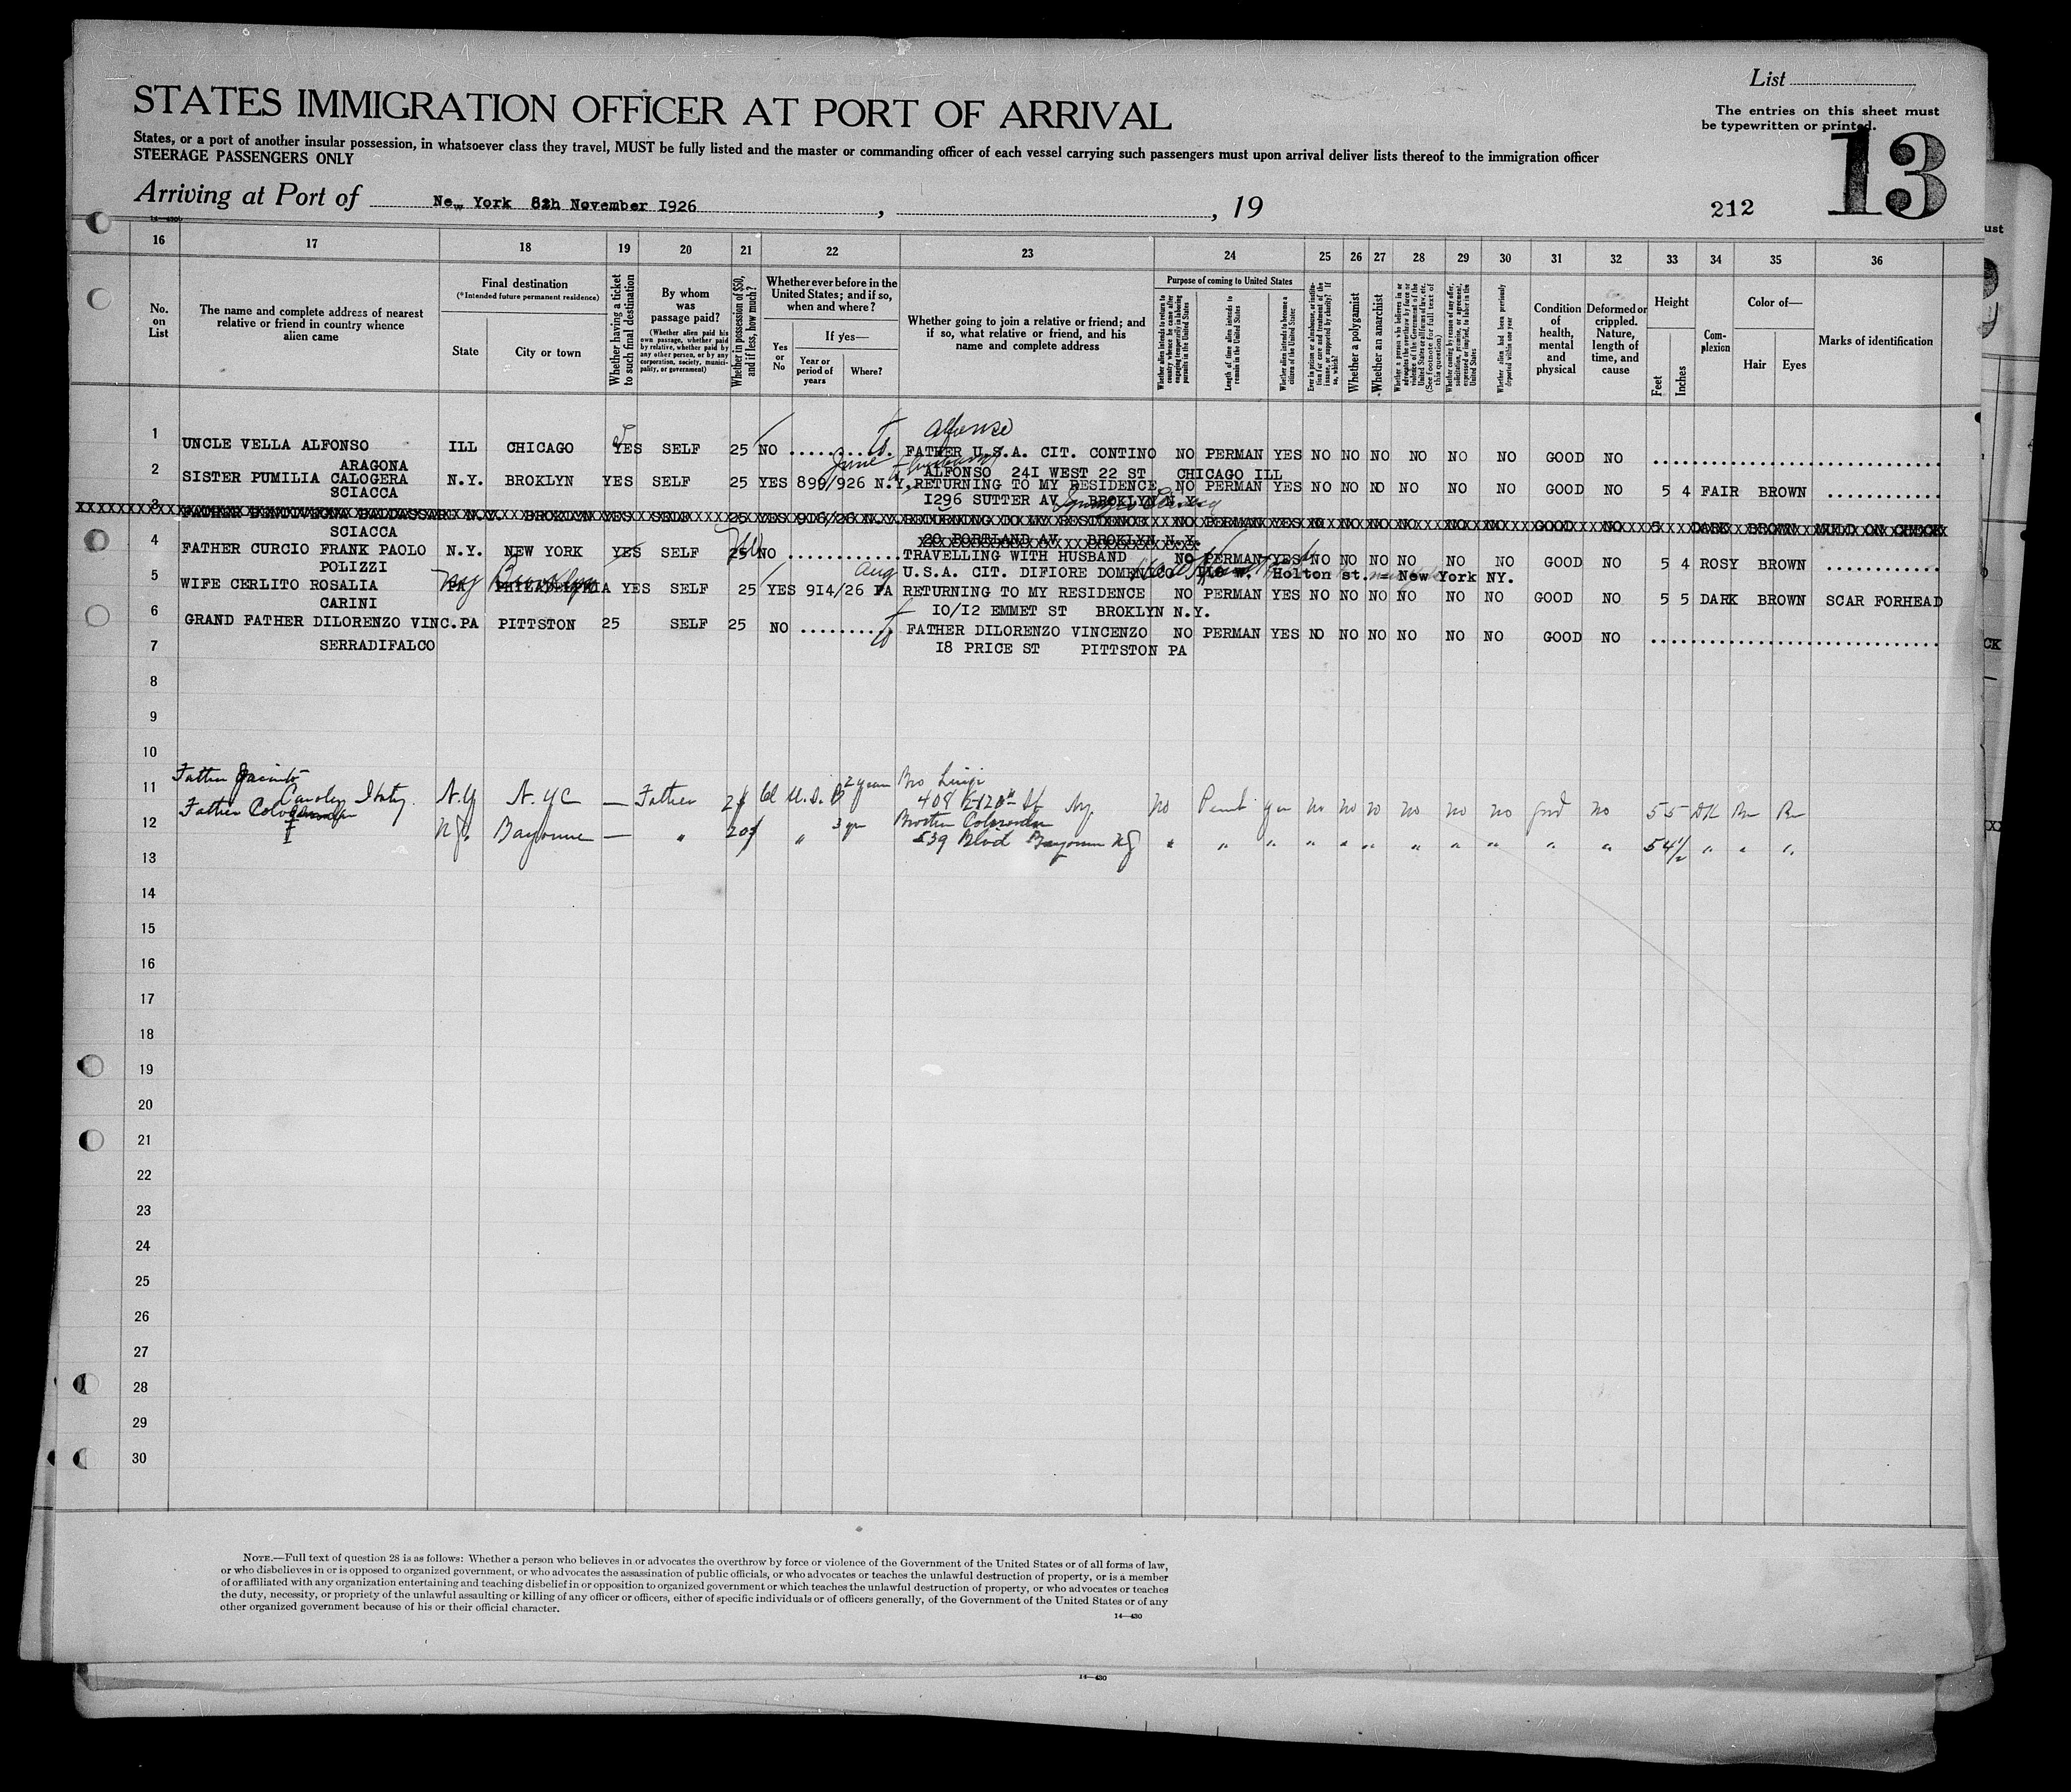 List
STATES IMMIGRATION OFFICER AT PORT OF ARRIVAL
The entries on this sheet must
be typewritten or printed.
States, or a port of another insular possession, in whatsoever class they travel, MUST be fully listed and the master or commanding officer of each vessel carrying such passengers must upon arrival deliver lists thereof to the immigration officer
STEERAGE PASSENGERS ONLY
13
Arriving at Port of New York November 1926, , 19
212
14—430
16 17 18 19 20 21 22 23 24 25 26 27 28 29 30 31 32 33 34 35 36
No. on List
The name and complete address of nearest relative or friend in country whence alien came
Final destination
(*Intended future permanent residence)
State
City or town
Whether having a ticket to such final destination
By whom was passage paid?
(Whether alien paid his own passage, whether paid by relative, whether paid by any other person, or by any corporation, society, municipality, or government)
Whether in possession of $50, and if less, how much?
Whether ever before in the United States; and if so, when and where?
Yes or No
If yes—
Year or period of years
Where?
Whether going to join a relative or friend; and if so, what relative or friend, and his name and complete address
Purpose of coming to United States
Whether alien intends to return to country whence he came after engaging temporarily in laboring pursuits in the United States
Length of time alien intends to remain in the United States
Whether alien intends to become a citizen of the United States
Ever in prison or almshouse, or institution for care and treatment of the insane, or supported by charity? If so, which?
Whether a polygamist
Whether an anarchist
Whether a person who believes in or advocates the overthrow by force or violence of the Government of the United States or all forms of law, etc. (See footnote for full text of this question)
Whether coming by reason of any offer, solicitation, promise, or agreement, expressed or implied, to labor in the United States
Whether alien had been previously deported within one year
Condition of health, mental and physical
Deformed or crippled. Nature, length of time, and cause
Height
Feet
Inches
Complexion
Color of—
Hair
Eyes
Marks of identification
Alfonso
1 UNCLE VELLA ALFONSO ILL CHICAGO YES SELF 25 NO ......... FATHER U.S.A. CIT. CONTINO NO PERMAN YES NO NO NO NO NO NO GOOD NO
ARAGONA ALFONSO 24I WEST 22 ST CHICAGO ILL
June husband
2 SISTER PUMILIA CALOGERA N.Y. BROKLYN YES SELF 25 YES 899/926 N.Y. RETURNING TO MY RESIDENCE NO PERMAN YES NO NO NO NO NO NO GOOD NO 5 4 FAIR BROWN
SCIACCA I296 SUTTER AV BROKLYN N.Y.
3 FATHER BENTIVEGNA BALDASSARE N.Y. BROKLYN YES SELF 25 YES 916/26 N.Y. RETURNING TO MY RESIDENCE NO PERMAN YES NO NO NO NO NO NO GOOD NO 5 DARK BROWN
SCIACCA 20 PORTLAND AV BROKLYN N.Y.
4 FATHER CURCIO FRANK PAOLO N.Y. NEW YORK YES SELF 25 NO ............ TRAVELLING WITH HUSBAND NO PERMAN YES NO NO NO NO NO NO GOOD NO 5 4 ROSY BROWN
POLIZZI U.S.A. CIT. DIFIORE DOMENICO Holton st. = New York NY.
Aug
5 WIFE CERLITO ROSALIA NY Brooklyn PA PHILADELPHIA YES SELF 25 YES 914/26 PA RETURNING TO MY RESIDENCE NO PERMAN YES NO NO NO NO NO NO GOOD NO 5 5 DARK BROWN SCAR FORHEAD
CARINI 10/12 EMMET ST BROKLYN N.Y.
6 GRAND FATHER DILORENZO VINC. PA PITTSTON 25 SELF 25 NO ......... FATHER DILORENZO VINCENZO NO PERMAN YES NO NO NO NO NO NO GOOD NO
7 SERRADIFALCO I8 PRICE ST PITTSTON PA
8
9
10
Father 2 years Bro Luigi
11 Italy N.Y N.Y.C — Father U.S. 408 E 120th St Ny. no Perm no no no no no no good no 5 5 DK Br Br
Father Brother
12 N.J. Bayonne — " 20 " 3 yrs 539 Blvd Bayonne NJ " " " " " " " " " " " 5 4½ " " "
13
14
15
16
17
18
19
20
21
22
23
24
25
26
27
28
29
30
NOTE.—Full text of question 28 is as follows: Whether a person who believes in or advocates the overthrow by force or violence of the Government of the United States or of all forms of law,
or who disbelieves in or is opposed to organized government, or who advocates the assassination of public officials, or who advocates or teaches the unlawful destruction of property, or is a member
of or affiliated with any organization entertaining and teaching disbelief in or opposition to organized government or which teaches the unlawful destruction of property, or who advocates or teaches
the duty, necessity, or propriety of the unlawful assaulting or killing of any officer or officers, either of specific individuals or of officers generally, of the Government of the United States or of any
other organized government because of his or their official character.
14—430
14—430